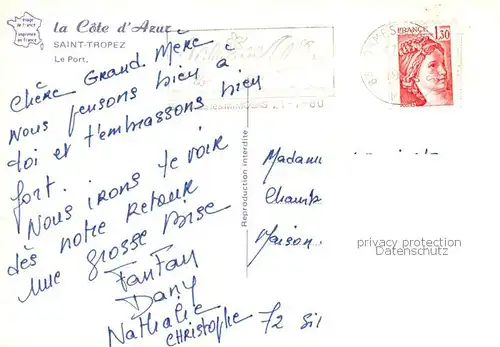 la Côte d'Azur
SAINT-TROPEZ
Le Port,
image de France
imprimée en France
FRANCE
1,30
21-7-80
Reproduction interdite
Chère Grand. Mère
Nous pensons bien à
toi et t'embrassons bien
fort.
Nous irons te voir
dès notre Retour
une grosse Bise
FanFan
Dany
Nathalie
christophe
Madame
Chambr
Maison
72 Sil
privacy protection
Datenschutz